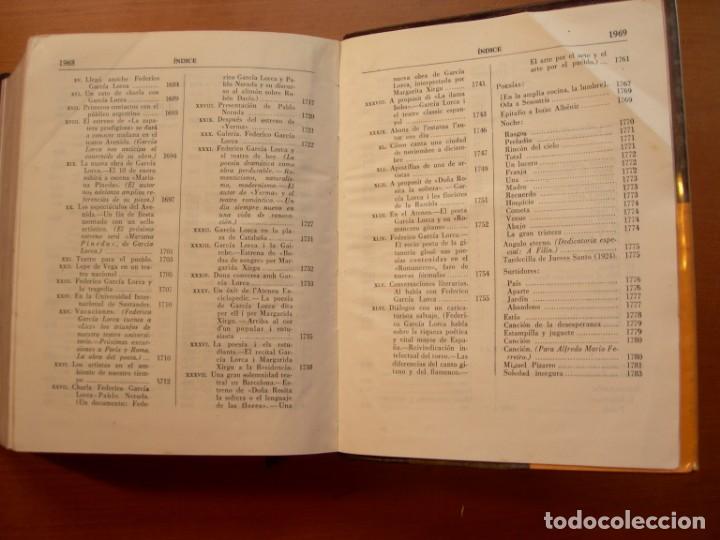 1968
ÍNDICE
XV. Llegó anoche Federico
García Lorca 1684
XVI. Un rato de charla con
García Lorca 1689
XVII. Primeros contactos con el
público argentino 1693
XVIII. El estreno de «La zapatera
prodigiosa» se dará
a conocer mañana en el
teatro Avenida. (García
Lorca nos anticipa el
contenido de su obra.) 1694
XIX. La nueva obra de García
Lorca. El 10 de enero
subirá a escena «Mariana
Pineda». (El autor
nos adelanta amplias referencias
de su pieza.) 1697
XX. Los espectáculos del Avenida.—Un
fin de fiesta
montado con un sello
artístico. (El próximo
estreno será «Mariana
Pineda», de García
Lorca.) 1701
XXI. Teatro para el pueblo. 1703
XXII. Lope de Vega en un teatro
nacional 1705
XXIII. Federico García Lorca y
la tragedia 1707
XXIV. En la Universidad Internacional
de Santander. 1710
XXV. Vacaciones. (Federico
García Lorca cuenta a
«Luz» los triunfos de
nuestro teatro universitario.—Próximas
excursiones
a París y Roma.
La obra del poeta.) 1710
XXVI. Los artistas en el ambiente
de nuestro tiempo
1712
XXVII. Charla Federico García
Lorca-Pablo Neruda.
(Un documento: Federico
García Lorca y Pablo
Neruda y su discurso
al alimón sobre Rubén
Darío.) 1717
XXVIII. Presentación de Pablo
Neruda 1720
XXIX. Después del estreno de
«Yerma» 1722
XXX. Galería. Federico García
Lorca
XXXI. Federico García Lorca y
el teatro de hoy. (La
poesía dramática como
obra perdurable.—Romanticismo,
naturalismo,
modernismo.—El
autor de «Yerma» y el
teatro romántico.—Un
día siempre nuevo en
una vida de renovación.)
1727
XXXII. García Lorca en la plaza
de Cataluña
XXXIII. García Lorca i la Guiche.—Estrena
de «Bodas
de sangre» per Margarida
Xirgu 1732
XXXIV. Dona conversa amb García
Lorca 1733
XXXV. Un èxit de l'Ateneu Enciclopedic.—La
poesía
de García Lorca dita
per ell i per Margarida
Xirgu.—Arriba al
cor d'un popular i estudiants
1735
XXXVI. La poesia i els estudiants.—El
recital García
Lorca i Margarida
Xirgu a la Residencia. 1738
XXXVII. Una gran solemnidad teatral
en Barcelona.—Estreno
de «Doña Rosita
la soltera o el lenguaje
de las flores».—Una
1969
ÍNDICE
nueva obra de García
Lorca, interpretada por
Margarita Xirgu 1741
XXXVIII. A propósit de «La dama
boba».—García Lorca i
el teatre classic espanyol
1743
XXXIX. Abans de l'estrena l'autor
ens diu
1746
XL. Cómo canta una ciudad
de noviembre a diciembre
1747
XLI. Apostillas de una de artistas
1749
XLII. A propòsit de «Doña Rosita
la soltera».—García
Lorca i les floristes
de la Rambla 1751
XLIII. En el Ateneo.—El poeta
García Lorca y su «Romancero
gitano» 1752
XLIV. Federico García Lorca.—
El socio poeta de la gitanería
glosó sus poesías
contenidas en el
«Romancero», faro de
nuevas fórmulas 1754
XLV. Conversaciones literarias.
Al habla con Federico
García Lorca 1755
XLVI. Diálogos con un caricaturista
salvaje. (Federico
García Lorca habla
sobre la riqueza poética
y vital mayor de España.—Reivindicación
intelectual
del toreo.—Las
diferencias del canto gitano
y del flamenco.—
El arte por el arte y el
arte por el pueblo.) 1761
Poesías:
(En la amplia cocina, la lumbre) 1767
Oda a Sesostris 1769
Epitafio a Isaac Albéniz 1769
Noche:
Rasgos 1770
Preludio 1771
Rincón del cielo 1771
Total 1772
Un lucero 1772
Franja 1772
Una 1772
Madre 1773
Recuerdo 1773
Hospicio 1773
Cometa 1773
Venus 1774
Abajo 1774
La gran tristeza 1774
Angulo eterno. (Dedicatoria especial:
A Filín) 1775
Tardecilla de Jueves Santo (1924). 1775
Surtidores:
País 1776
Aparte 1776
Jardín 1777
Abandono 1777
Estío 1778
Canción de la desesperanza 1778
Estampilla y juguete 1779
Canción 1779
Canción. (Para Alfredo Mario Ferreiro.)
1780
Miguel Pizarro 1782
Soledad insegura 1783
todocoleccion